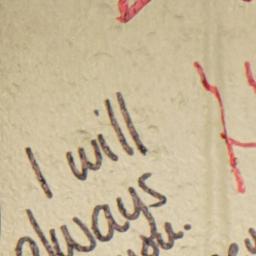 I will
always
you.